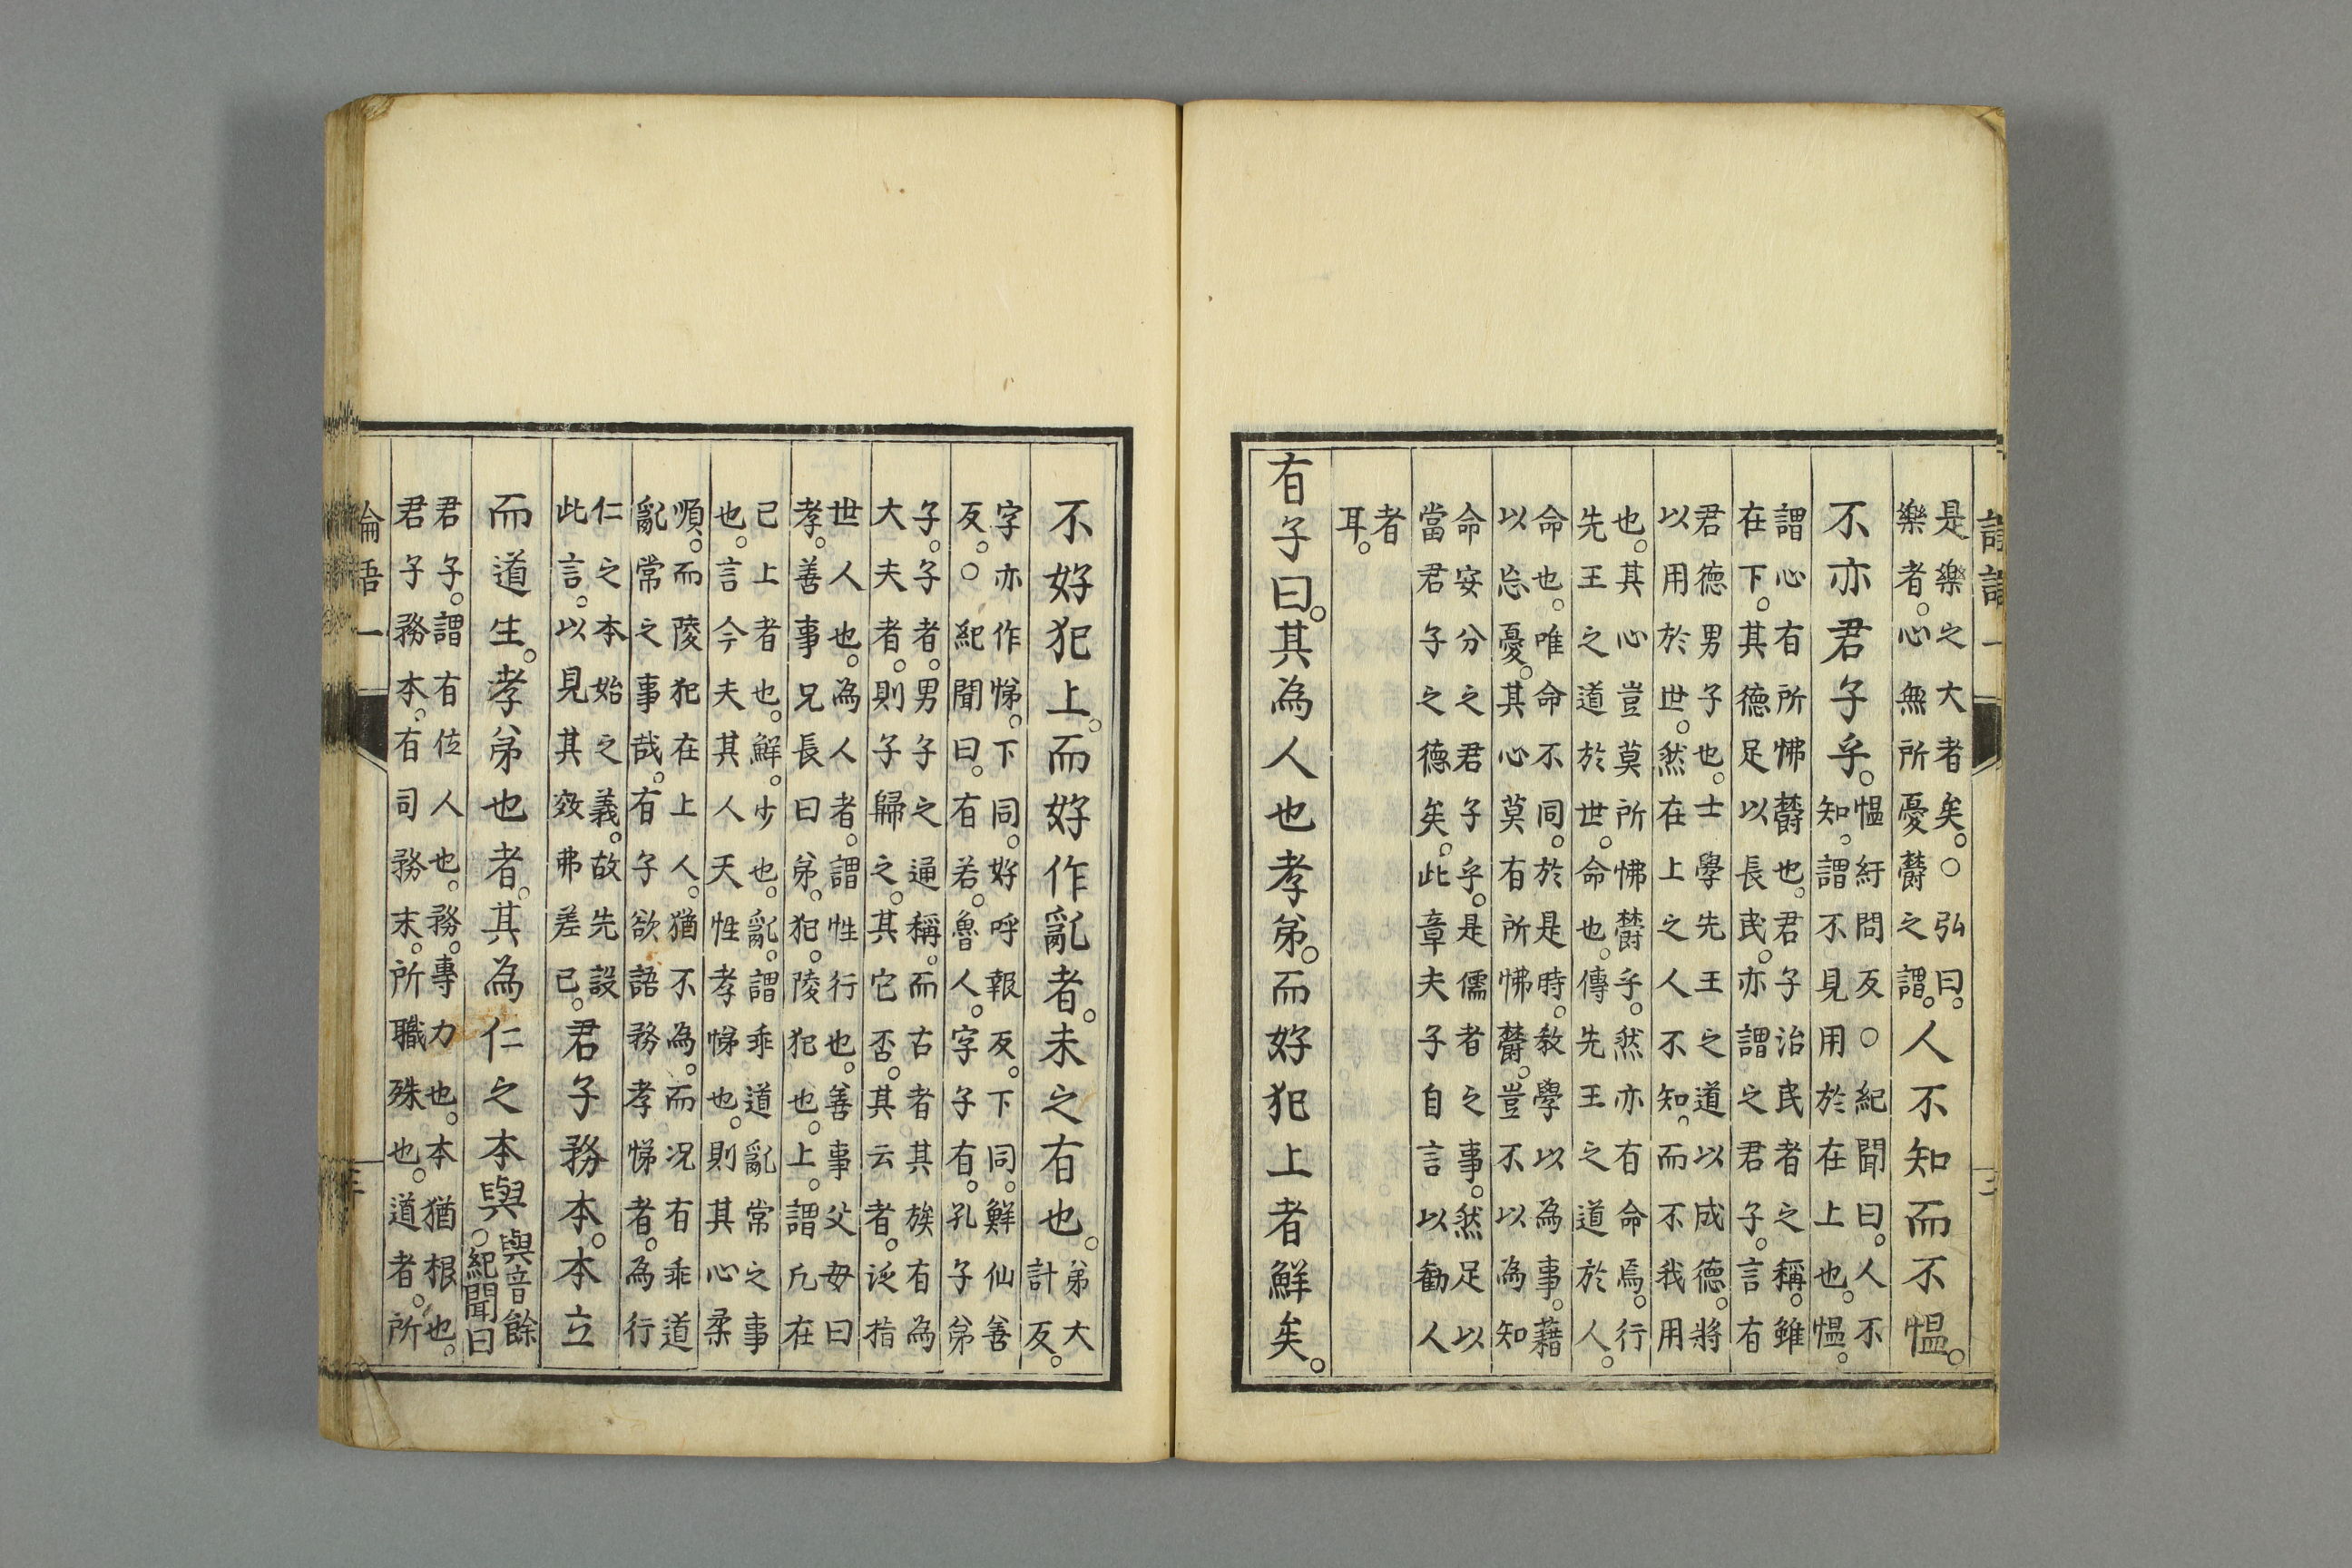 是樂之大者矣。○弘曰。
樂者。心無所憂欝之謂。
人不知而不慍。
不亦君子乎。
慍紆問反○紀聞曰。人不
知。謂不見用於在上也。慍。
謂心有所怫欝也。君子治民者之稱。雖
在下。其德足以長民。亦謂之君子。言有
君德男子也。士學先王之道以成德。將
以用於世。然在上之人不知。而不我用
也。其心豈莫所怫欝乎。然亦有命焉。行
先王之道於世。命也。傳先王之道於人。
命也。唯命不同。於是時。教學以為事。藉
以忘憂。其心莫有所怫欝。豈不以為知
命安分之君子乎。是儒者之事。然足以
當君子之德矣。此章夫子自言以勸人
者
耳。
有子曰。其為人也孝弟。而好犯上者鮮矣。
不好犯上。而好作亂者。未之有也。
弟大
計反。
字亦作悌。下同。好呼報反。下同。鮮仙善
反。○紀聞曰。有若。魯人。字子有。孔子弟
子。子者。男子之通稱。而古者其族有為
大夫者。則子歸之。其它否。其云者。泛指
世人也。為人者。謂性行也。善事父母曰
孝。善事兄長曰弟。犯。陵犯也。上。謂凡在
己上者也。鮮。少也。亂。謂乖道亂常之事
也。言今夫其人天性孝悌也。則其心柔
順。而陵犯在上人。猶不為。而況有乖道
亂常之事哉。有子欲語務孝悌者。為行
仁之本始之義。故先設
此言。以見其效弗差已。
君子務本。本立
而道生。孝弟也者。其為仁之本與
與音餘
○紀聞曰
君子。謂有位人也。務。專力也。本猶根也。
君子務本。有司務末。所職殊也。道者。所
論語一